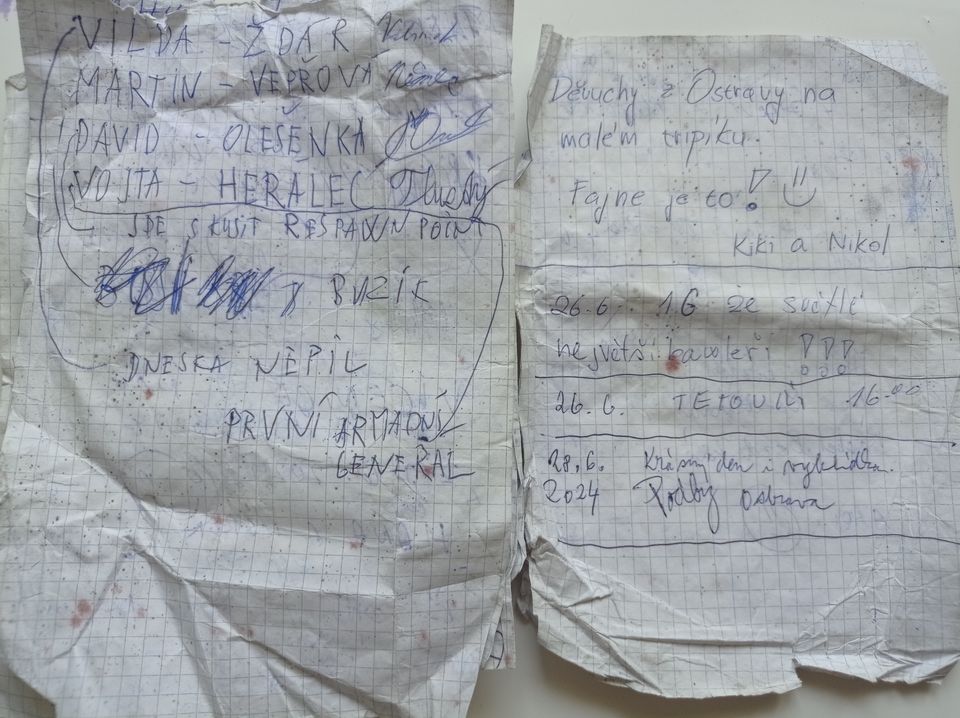 VILDA – ŽĎÁR
MARTIN – VEPŘOVÁ
DAVID – OLEŠENKA
VOJTA – HERALEC Tluchý
JDE SKUSIT RESPAWN POINT
BUZÍK
DNESKA NEPIL
PRVNÍ ARMADNÍ
GENERÁL
Děvuchy z Ostravy na
malém tripíku.
Fajne je to!
Kiki a Nikol
26.6. 1G ze světlé
největší !!!
26.6. 16.00
28.6. Krásný den i vyhlídka.
2024 Podby Ostrava